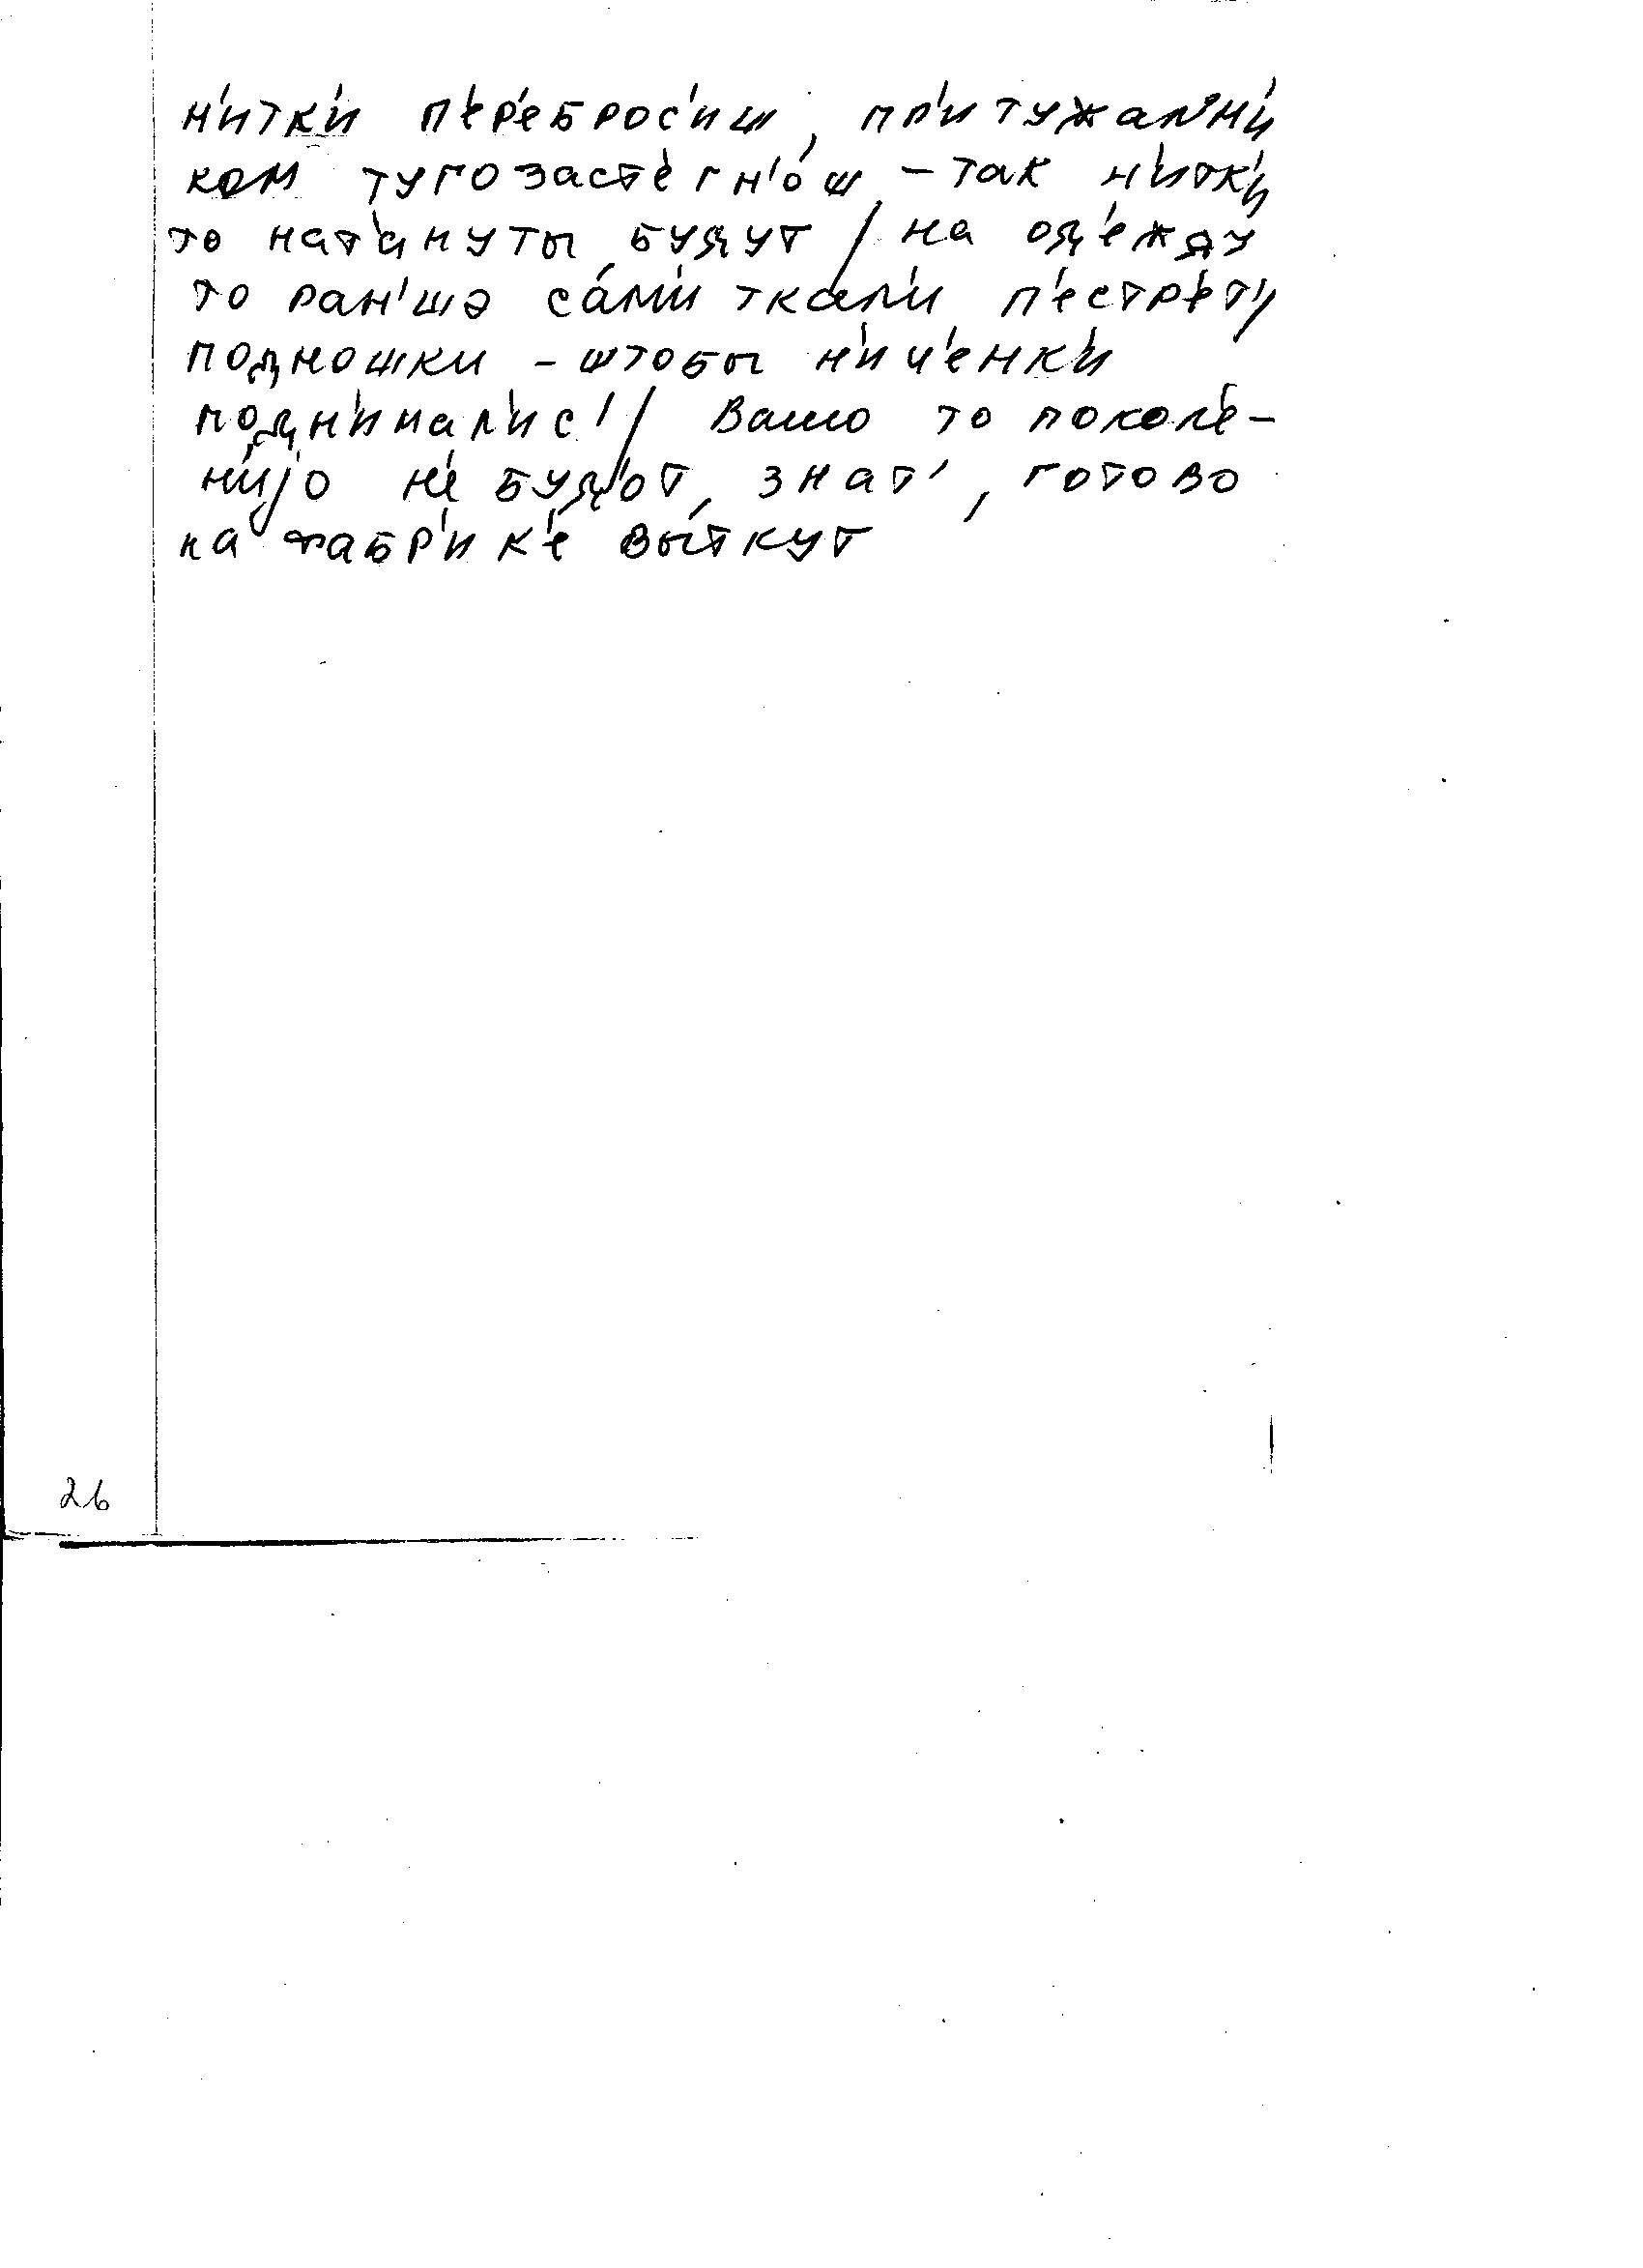 н'итк'и п'ер'еброс'иш, пр'итужал'н'и
ком туго застегн'о́ш – так н'итк'и
то нат'ануты будут / на од'ежду
то ран'шэ са́м'и ткал'и п'естр'ет'/
подношки – штобы н'ич'енк'и
подн'имал'ис' / Вашо то покол'е-
н'ијо н'е буд'от знат', готово
на фабр'ик'е вы́ткут
26